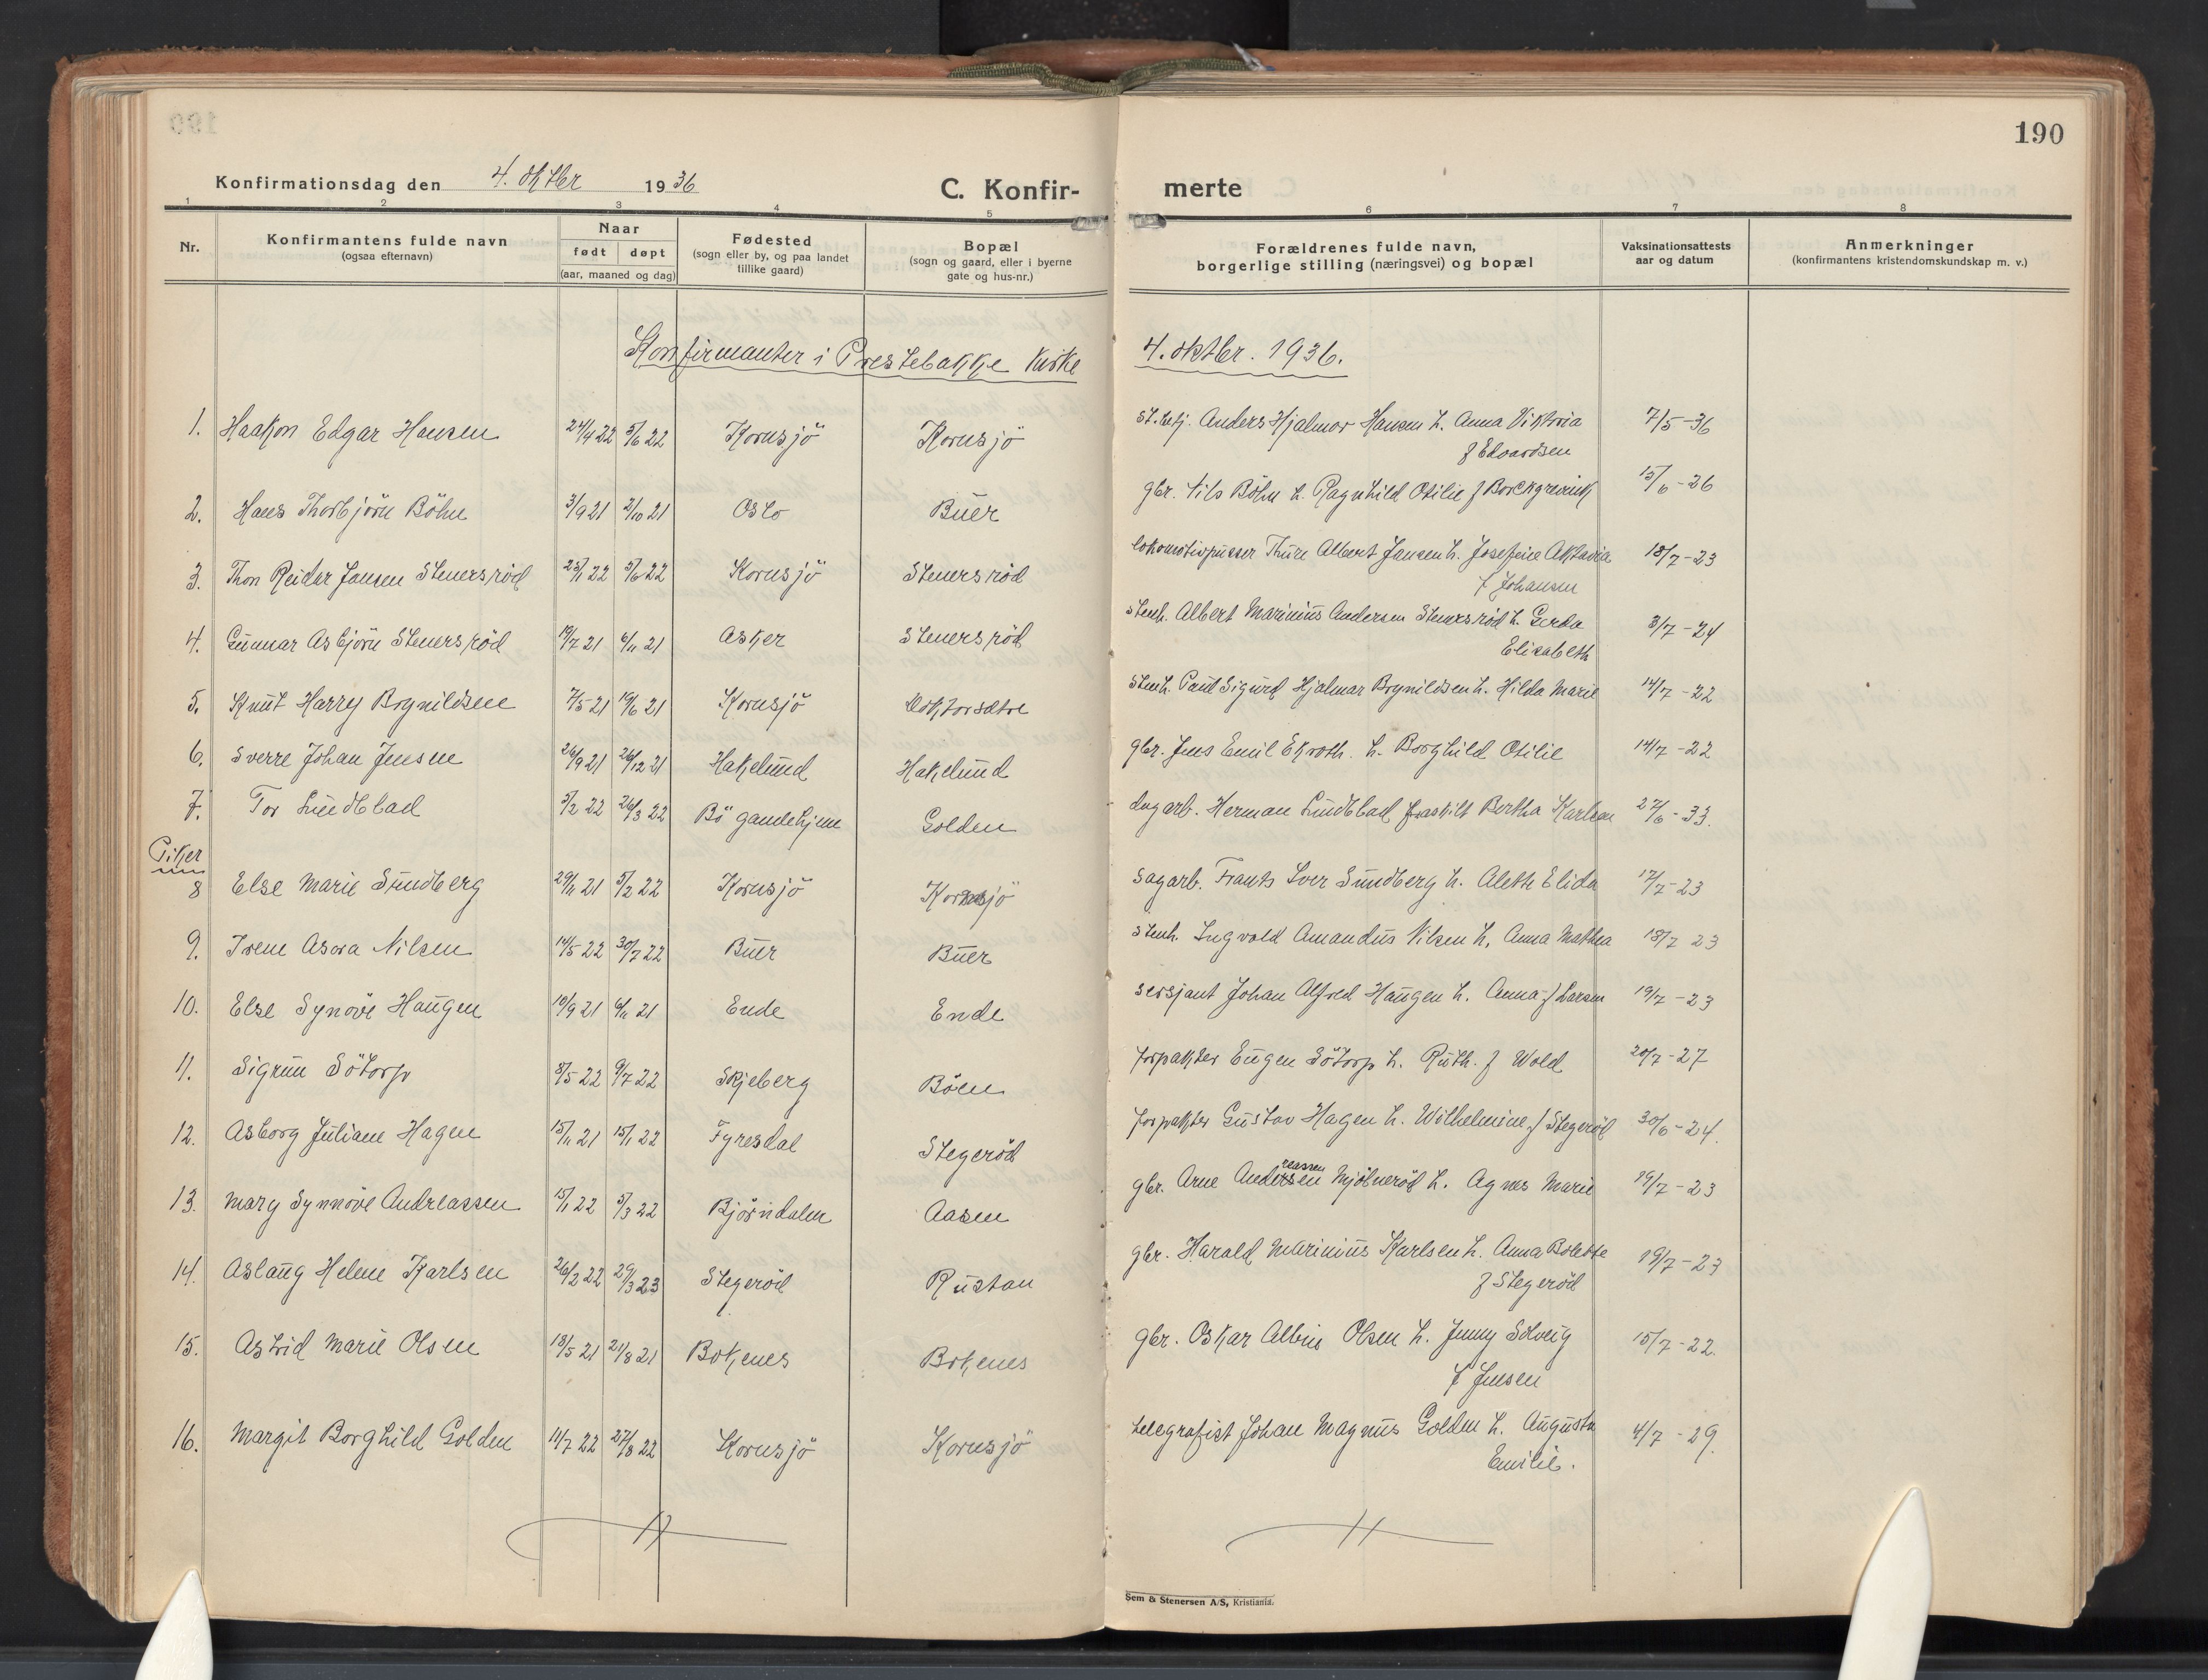 190
Konfirmationsdag den 4. oktbr 1936
C. Konfir-
merte
1 2 3 4 5 6 7 8
Nr.
Konfirmantens fulde navn
(ogsaa efternavn)
Naar
født døpt
(aar, maaned og dag)
Fødested
(sogn eller by, og paa landet
tillike gaard)
Bopæl
(sogn og gaard, eller i byerne
gate og hus-nr.)
Forældrenes fulde navn,
borgerlige stilling (næringsvei) og bopæl
Vaksinationsattests
aar og datum
Anmerkninger
(konfirmantens kristendomskundskap m. v.)
Konfirmanter i Prestebakke Kirke 4. oktbr. 1936.
1. Haakon Edgar Hansen 24/4 22 5/6 22 Kornsjö Kornsjö st.betj. Anders Hjalmar Hansen h. Anna Viktoria 7/5-36
f Edvardsen
2. Hans Thorbjörn Böhn 3/9 21 2/10 21 Oslo Buer gbr. Nils Böhn h. Ragnhild Otilie f Borchgrevink 15/6-26
3. Thon Reidar Jansen Stenersröd 25/1 22 5/6 22 Kornsjö Stenersröd lokomotivpusser Thure Albert Jansen h. Josefine Aktavia 18/7-23
f Johansen
4. Gunnar Asbjörn Stenersröd 19/7 21 6/11 21 Asker Stenersröd stenh. Albert Marinius Andersen Stenersröd h. Gerda 3/7-24
Elisabeth
5. Knut Harry Brynildsen 7/5 21 19/6 21 Kornsjö Doktorsætre stenh. Paul Sigurd Hjalmar Brynildsen h. Hilda Marie 14/7-22
6. Sverre Johan Jensen 26/9 21 26/12 21 Hakelund Hakelund gbr. Jens Emil Ekroth. h. Borghild Otilie 14/7-22
7. Tor Lindblad 5/2 22 26/3 22 Bö gamlehjem Golden dagarb. Herman Lindblad fraskilt Bertha Karlsen 27/6-33.
Piker
8 Else Marie Sundberg 29/11 21 5/2 22 Kornsjö Kornsjö sagarb. Frants Iver Sundberg h. Aleth Elida 17/7-23
9. Irene Asora Nilsen 14/5 22 30/7 22 Buer Buer stenh. Ingvald Amandus Nilsen h. Anna Mathea 18/7 23
10. Else Synöve Haugen 10/9 21 6/11 21 Ende Ende sersjant Johan Alfred Haugen h. Anna f Larsen 19/7-23
11. Sigrun Sötorp 8/5 22 9/7 22 Skjeberg Böen forpakter Eugen Sötorp h. Ruth. f Wold 20/7-27
12. Asborg Juliane Hagen 15/11 21 15/1 22 Fyresdal Stegeröd forpakter Gustav Hagen h. Wilhelmine f Stegeröd 30/6-24.
13. Mary Synnöve Andreassen 15/1 22 5/3 22 Björndalen Aasen gbr. Arne Andersen reassen Mjölneröd h. Agnes Marie 19/7-23
14. Aslaug Helene Karlsen 26/2 22 29/3 23 Stegeröd Rustan gbr. Harald Marinius Karlsen h. Anna Bolette 19/7-23
f Stegeröd
15. Astrid Marie Olsen 13/5 21 21/8 21 Bokenes Bokenes gbr. Oskar Albin Olsen h. Jenny Solveig 15/7-22.
f Jensen
16. Margit Borghild Golden 11/7 22 27/8 22 Kornsjö Kornsjö telegrafist Johan Magnus Golden h. Augusta 4/7-29.
Emilie.
Sem & Stenersen A/S, Kristiania.